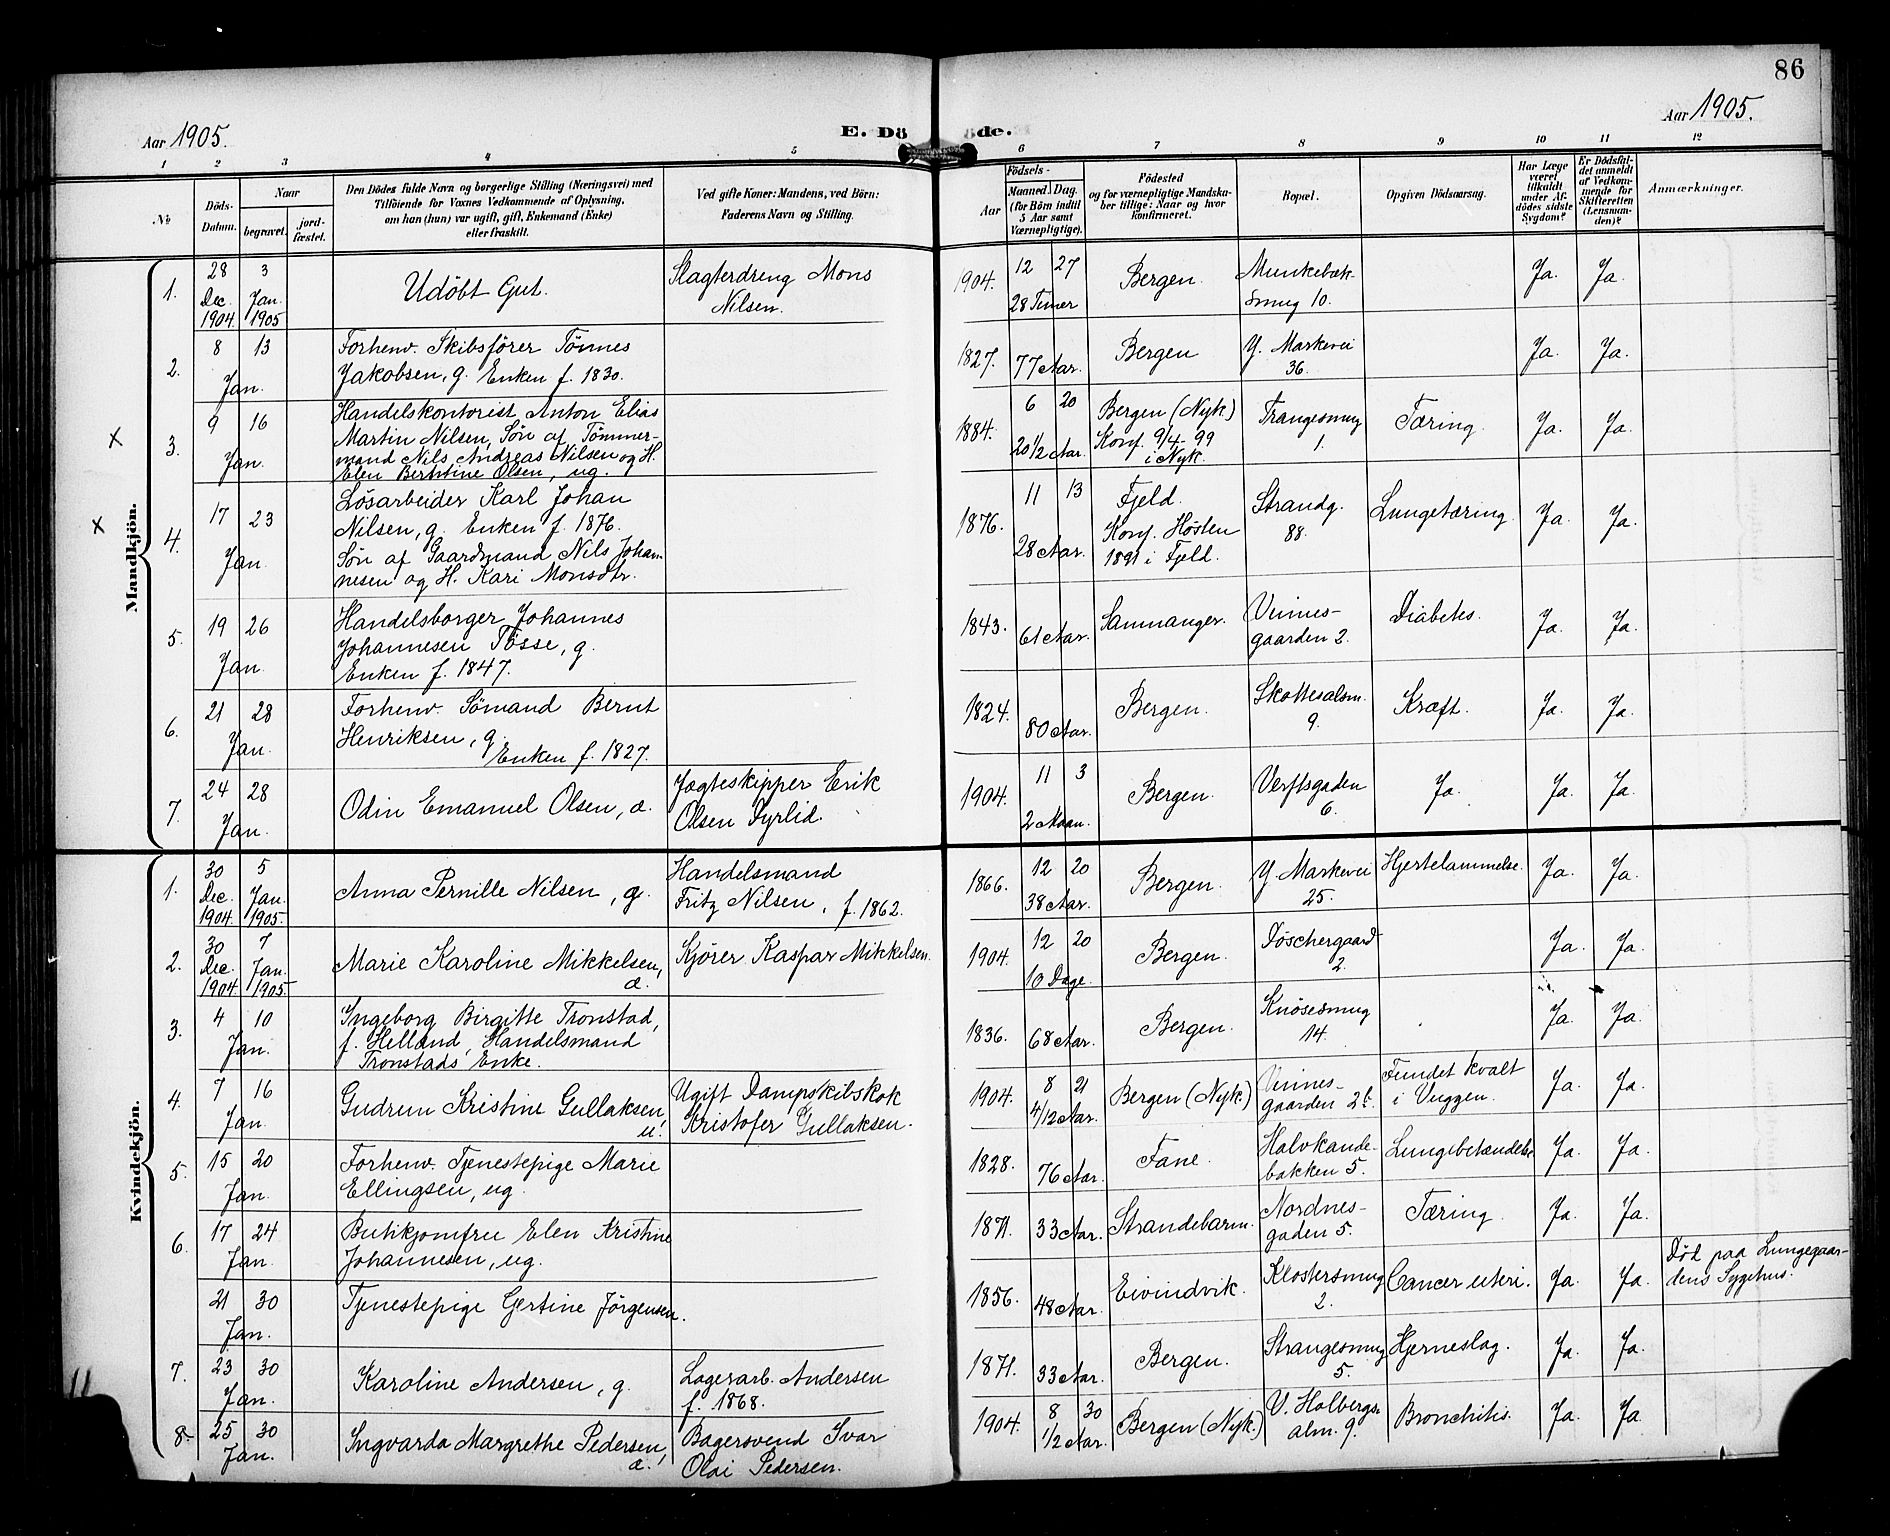 86
Aar 1905.
E. Döde.
Aar 1905.
1 2 3 4 5 6 7 8 9 10 11 12
№
Döds-Datum.
Naar
begravet.
jord-fæstet.
Den Dödes fulde Navn og borgerlige Stilling (Næringsvei) med
Tilföiende for Voxnes Vedkommende af Oplysning,
om han (hun) var ugift, gift, Enkemand (Enke)
eller fraskilt.
Ved gifte Koner: Mandens, ved Börn:
Faderens Navn og Stilling.
Födsels-
Aar
Maaned. Dag.
(for Börn indtil
5 Aar samt
Værnepligtige).
Födested
og for værnepligtige Mandska-
ber tillige: Naar og hvor
konfirmeret.
Bopæl.
Opgiven Dödsaarsag.
Har Læge
været
tilkaldt
under Af-
dödes sidste
Sygdom?
Er Dödsfal-
det anmeldt
af Vedkom-
mende for
Skifteretten
(Lensman-
den)?
Anmærkninger.
Mandkjön.
1. 28 Dec. 1904. 3 Jan. 1905
Udöbt Gut.
Slagterdreng Mons
Nilsen.
1904. 12 27
28 Timer
Bergen.
Munkebæk-
smug 10.
Ja. Ja.
2. 8 13 Jan.
Forhenv. Skibsförer Tönnes
Jakobsen, g. Enken f. 1830.
1827. 77 Aar.
Bergen
Y. Markevei
36.
Ja. Ja.
x 3. 9 16 Jan.
Handelskontorist Anton Elias
Martin Nilsen, Sön af Tömmer-
mand Nils Andreas Nilsen og H.
Elen Berntine Olsen, ug.
1884. 6 20
20 1/2 Aar.
Bergen (Nyk.)
Konf. 9/4-99
i Nyk.
Trangesmug
1.
Tæring.
Ja. Ja.
x 4. 17 23 Jan.
Lösarbeider Karl Johan
Nilsen, g. Enken f. 1876.
Sön af Gaardmand Nils Johan-
nesen og H. Kari Monsdtr.
1876. 11 13
28 Aar.
Fjeld.
Konf. Hösten
1891 i Fjeld.
Strandg.
88.
Lungetæring.
Ja. Ja.
5. 19 26 Jan.
Handelsborger Johannes
Johannesen Tösse, g.
Enken f. 1847.
1843. 61 Aar.
Sammanger.
Vinnes-
gaarden 2.
Diabetes.
Ja. Ja.
6. 21 28 Jan.
Forhenv. Sömand Bernt
Henriksen, g.
Enken f. 1827.
1824. 80 Aar.
Bergen.
Skottesalsm.
9.
Kræft.
Ja. Ja.
7. 24 28 Jan.
Odin Emanuel Olsen, æ.
Jægteskipper Erik
Olsen Dyrlid.
1904. 11 3
2 Maan.
Bergen.
Verftsgaden
6.
Ja. Ja. Ja.
Kvindekjön.
1. 30 Dec. 1904. 5 Jan. 1905.
Anna Pernille Nilsen, g.
Handelsmand
Fritz Nilsen, f. 1862.
1866. 12 20
38 Aar.
Bergen.
Y. Markevei
25.
Hjertelammelse.
Ja. Ja.
2. 30 Dec. 1904. 7 Jan. 1905.
Marie Karoline Mikkelsen,
æ.
Kjörer Kaspar Mikkelsen.
1904. 12 20
10 Dage.
Bergen.
Döschergaard
2.
Ja. Ja.
3. 4 10 Jan.
Ingeborg Birgitte Tronstad,
f. Helland, Handelsmand
Tronstads Enke.
1836. 68 Aar.
Bergen.
Knösesmug
14.
Ja. Ja.
4. 7 16 Jan.
Gudrun Kristine Gullaksen,
u.
Ugift Dampskibskok
Kristofer Gullaksen.
1904. 8 21
4/12 Aar.
Bergen (Nyk.)
Vinnes-
gaarden 2b.
Fundet kvalt
i Vuggen.
Ja. Ja.
5. 15 20 Jan.
Forhenv. Tjenestepige Marie
Ellingsen, ug.
1828. 76 Aar.
Fane.
Halvkande-
bakken 5.
Lungebetændelse
Ja. Ja.
6. 17 24 Jan.
Butikjomfru Elen Kristine
Johannesen, ug.
1871. 33 Aar.
Strandebarm.
Nordnes-
gaden 5.
Tæring.
Ja. Ja.
21 30 Jan.
Tjenestepige Gertine Jörgensen.
1856. 48 Aar.
Eivindvik.
Klostersmug
2.
Cancer uteri.
Ja. Ja.
Död paa Lungegaar-
dens Sygehus.
7. 23 30 Jan.
Karoline Andersen, g.
Lagerarb. Andersen
f. 1868.
1871. 33 Aar.
Bergen.
Strangesmug
5.
Hjerneslag.
Ja. Ja.
8. 25 30 Jan.
Ingvarda Margrethe Pedersen,
æ.
Bagersvend Ivar
Olai Pedersen.
1904. 8 30
1/2 Aar.
Bergen (Nyk.)
V. Holbergs-
alm. 9.
Bronchitis.
Ja. Ja